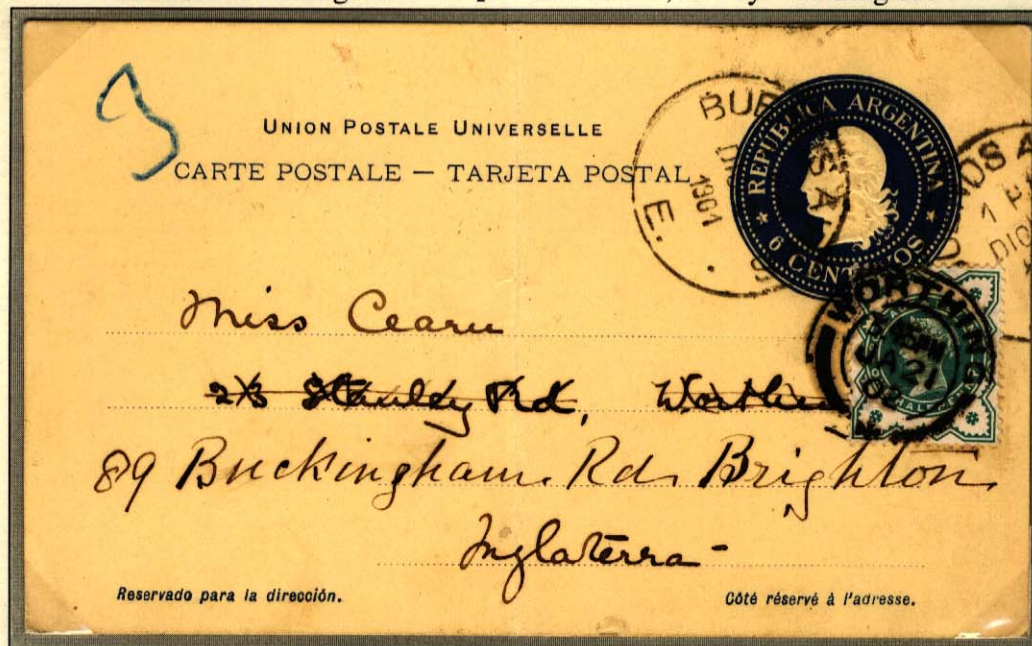 UNION POSTALE UNIVERSELLE
CARTE POSTALE — TARJETA POSTAL
REPÚBLICA ARGENTINA
6 CENTAVOS
BUE
S A
DIC
1901
E.
OS A
1 P
DIC
WORTHING
PM
JA 21
02
HALF
Miss
Stanley Rd,
89 Buckingham Rd Brighton
Inglaterra -
Reservado para la dirección.
Côté réservé à l'adresse.